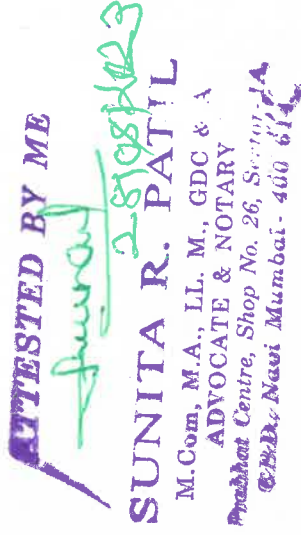 ATTESTED BY ME
28/08/2023
SUNITA R. PATIL
M.Com, M.A., LL. M., GDC & A
ADVOCATE & NOTARY
Prabhat Centre, Shop No. 26, Sector-1A,
C.B.D., Navi Mumbai - 400 614.